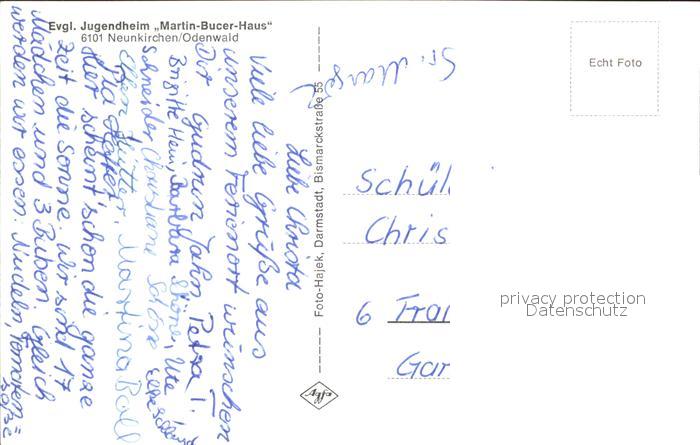 Evgl. Jugendheim „Martin-Bucer-Haus"
6101 Neunkirchen/Odenwald
Liebe Christa
Viele liebe Grüße aus
unserem Ferienort wünschen
Dir Gudrun Jahn Petra I.
Brigitte Hein, Barbara Ute
Schneider Christiane
Ellen Martina Ball
Hier scheint schon die ganze
Zeit die Sonne. Wir sind 17
Mädchen und 3 Buben. Gleich
werden wir essen. Nudeln, Tomaten=
soße
Foto-Hajek, Darmstadt, Bismarckstraße 55
Agfa
Echt Foto
Schül
Chris
6 Fra
Gar
privacy protection
Datenschutz